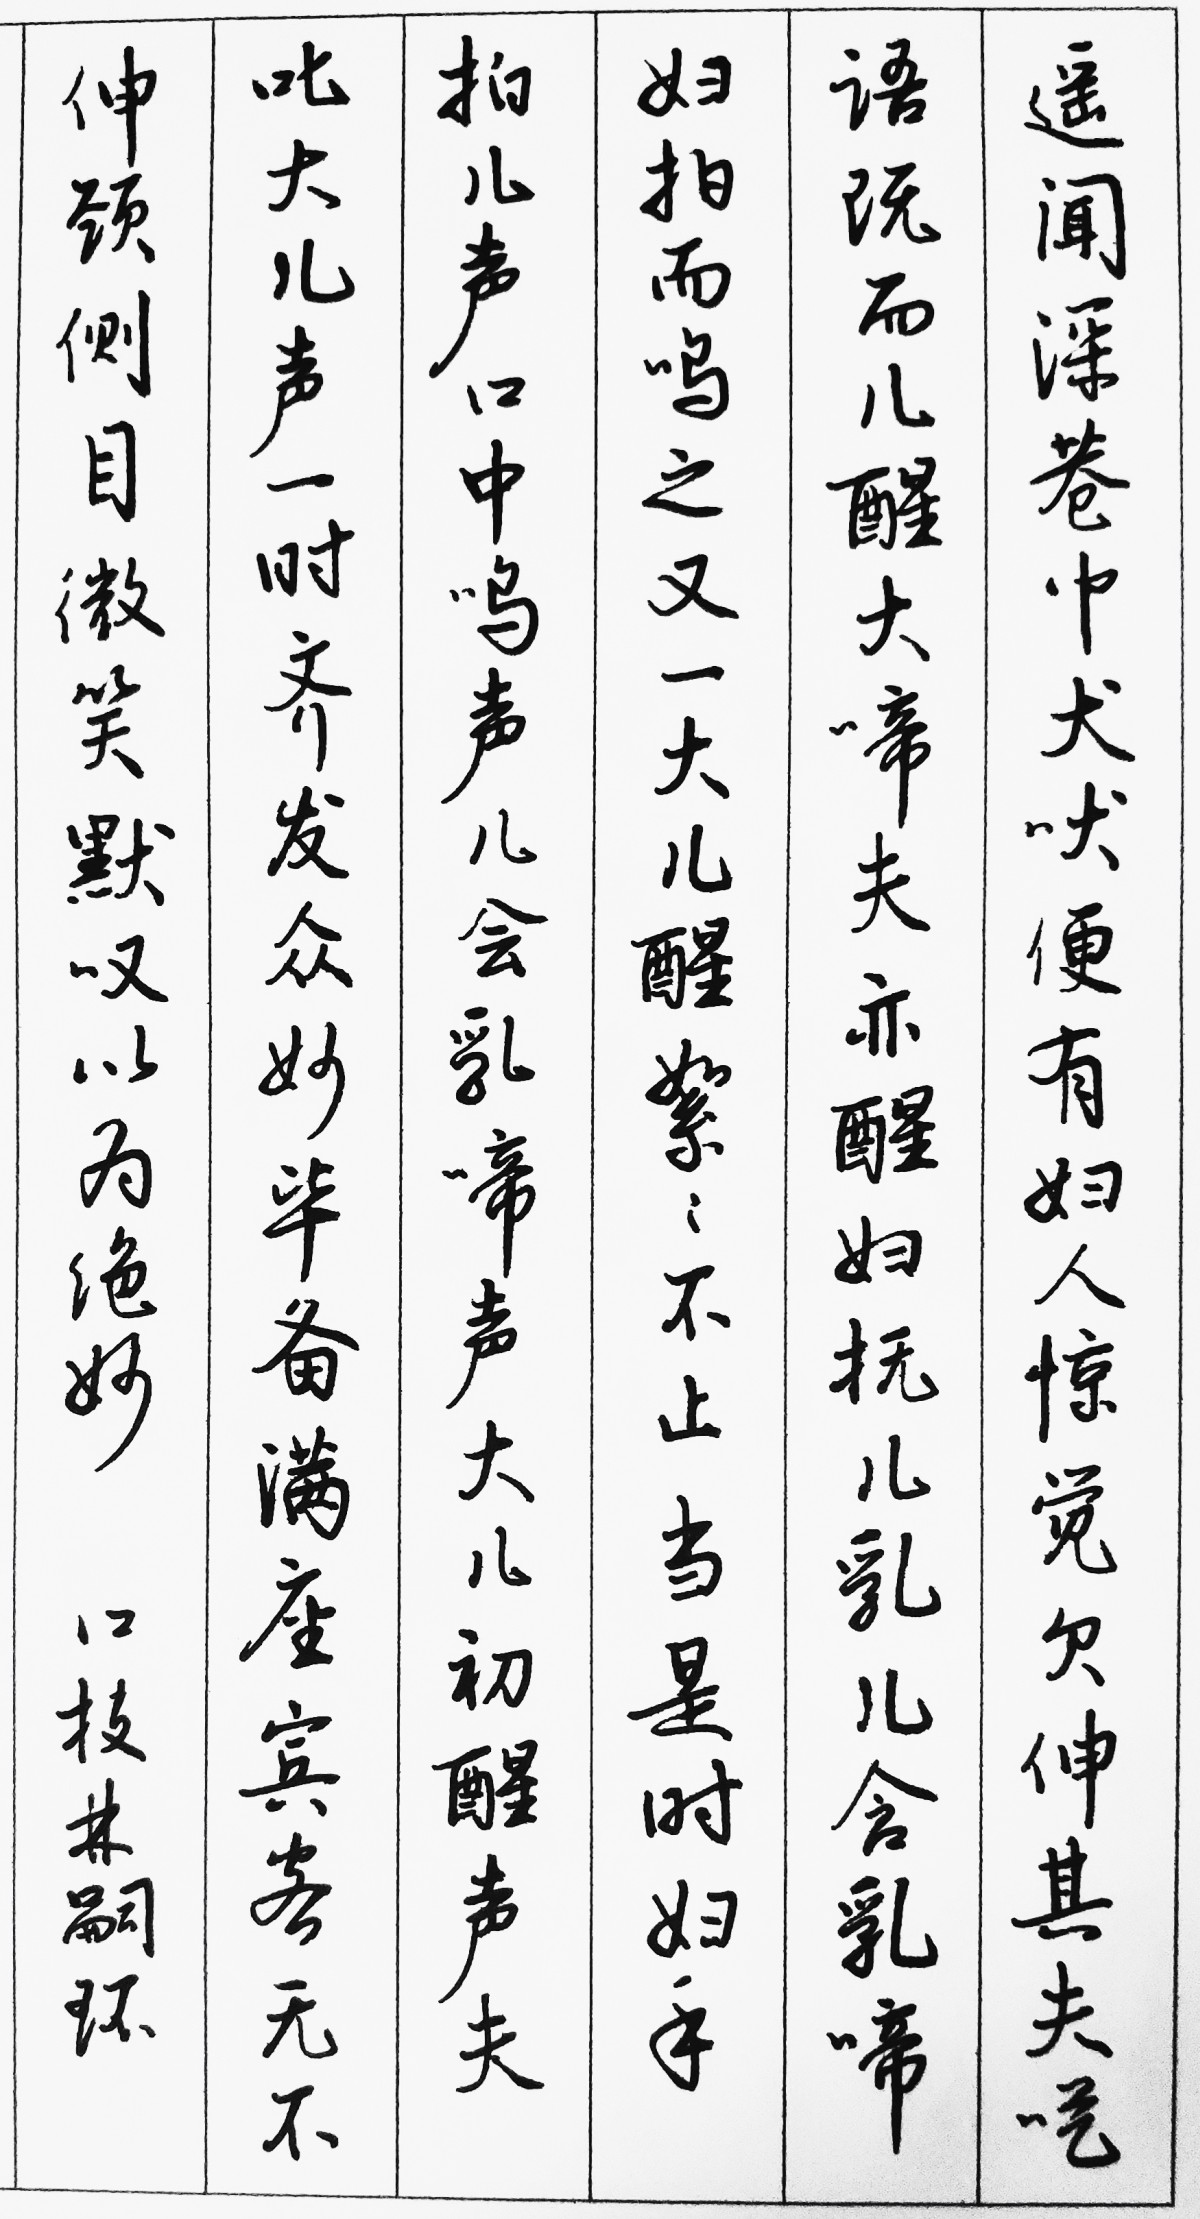 遥闻深巷中犬吠便有妇人惊觉欠伸其夫呓
语既而儿醒大啼夫亦醒妇抚儿乳儿含乳啼
妇拍而呜之又一大儿醒絮〻不止当是时妇手
拍儿声口中呜声儿会乳啼声大儿初醒声夫
叱大儿声一时齐发众妙毕备满座宾客无不
伸颈侧目微笑默叹以为绝妙 口技林嗣环